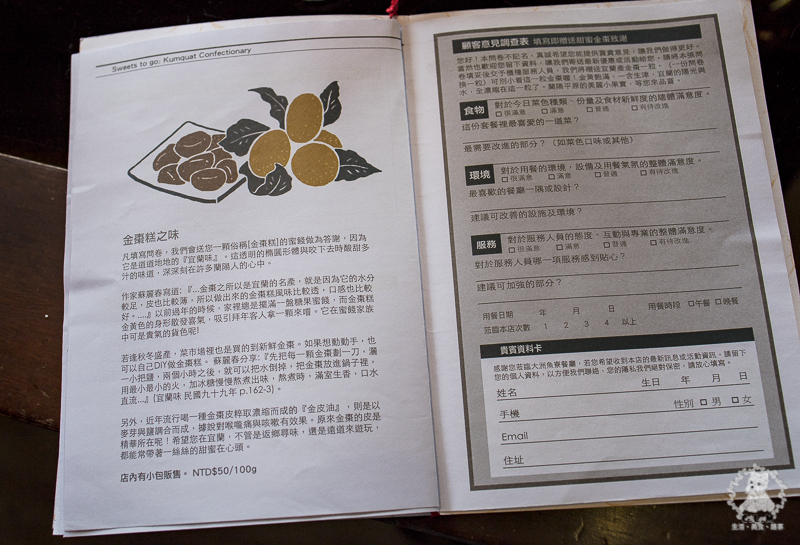 Sweets to go: Kumquat Confectionary
金棗糕之味
凡填寫問卷，我們會送您一顆俗稱[金棗糕]的蜜餞做為答謝，因為
它是道道地地的『宜蘭味』。這透明的橢圓形體與咬下去時酸甜多
汁的味道，深深刻在許多蘭陽人的心中。
作家蘇麗春寫道：『...金棗之所以是宜蘭的名產，就是因為它的水分
較足，皮也比較薄，所以做出來的金棗糕風味比較透，口感也比較
好。....』以前過年的時候，家裡總是擺滿一盤糖果蜜餞，而金棗糕
金黃色的身形散發喜氣，吸引拜年客人拿一顆來嚐。它在蜜餞家族
中可是貴氣的貨色呢!
若逢秋冬盛產，菜市場裡也是買的到新鮮金棗。如果想動動手，也
可以自己DIY做金棗糕。 蘇麗春分享:『先把每一顆金棗劃一刀，灑
一小把鹽，兩個小時之後，就可以把水倒掉，把金棗放進鍋子裡，
用最小最小的火，加冰糖慢慢熬煮出味，熬煮時，滿室生香，口水
直流...』(宜蘭味 民國九十九年 p.162-3)。
另外，近年流行喝一種金棗皮粹取濃縮而成的『金皮油』，則是以
麥芽與鹽調合而成，據說對喉嚨痛與咳嗽有效果。原來金棗的皮是
精華所在呢！希望您在宜蘭，不管是返鄉尋味，還是遠道來遊玩，
都能常帶著一絲絲的甜蜜在心頭。
店內有小包販售。 NTD$50/100g
顧客意見調查表 填寫即贈送甜蜜金棗致謝
您好！本問卷不記名，真誠希望您能提供寶貴意見，讓我們做得更好。
當然也歡迎您留下資料，讓我們寄送最新優惠或活動給您。請將本張問
卷填妥後交予櫃檯服務人員，我們將贈送宜蘭產金棗一粒。（一份問卷
換一粒）可別小看這一粒金棗喔！金黃飽滿，一含生津，宜蘭的陽光與
水，全濃縮在這一粒了。蘭陽平原的美麗小果實，等您來品嘗。
食物 對於今日菜色種類、份量及食材新鮮度的總體滿意度。
□ 很滿意 □ 滿意 □ 普通 □ 有待改進
這份套餐裡最喜愛的一道菜？
最需要改進的部分？（如菜色口味或其他）
環境 對於用餐的環境，設備及用餐氣氛的整體滿意度。
□ 很滿意 □ 滿意 □ 普通 □ 有待改進
最喜歡的餐廳一隅或設計？
建議可改善的設施及環境？
服務 對於服務人員的態度、互動與專業的整體滿意度。
□ 很滿意 □ 滿意 □ 普通 □ 有待改進
對於服務人員哪一項服務感到貼心？
建議可加強的部分？
用餐日期 年 月 日 用餐時段 □午餐 □晚餐
蒞臨本店次數 1 2 3 4 以上
貴賓資料卡
感謝您蒞臨大洲魚寮餐廳，若您希望收到本店的最新訊息或活動資訊。請留下
您的個人資料，以方便我們聯絡。您的隱私我們絕對保密，請放心填寫。
姓名 生日 年 月 日
手機 性別 □ 男 □ 女
Email
住址
生活、美食、趣事